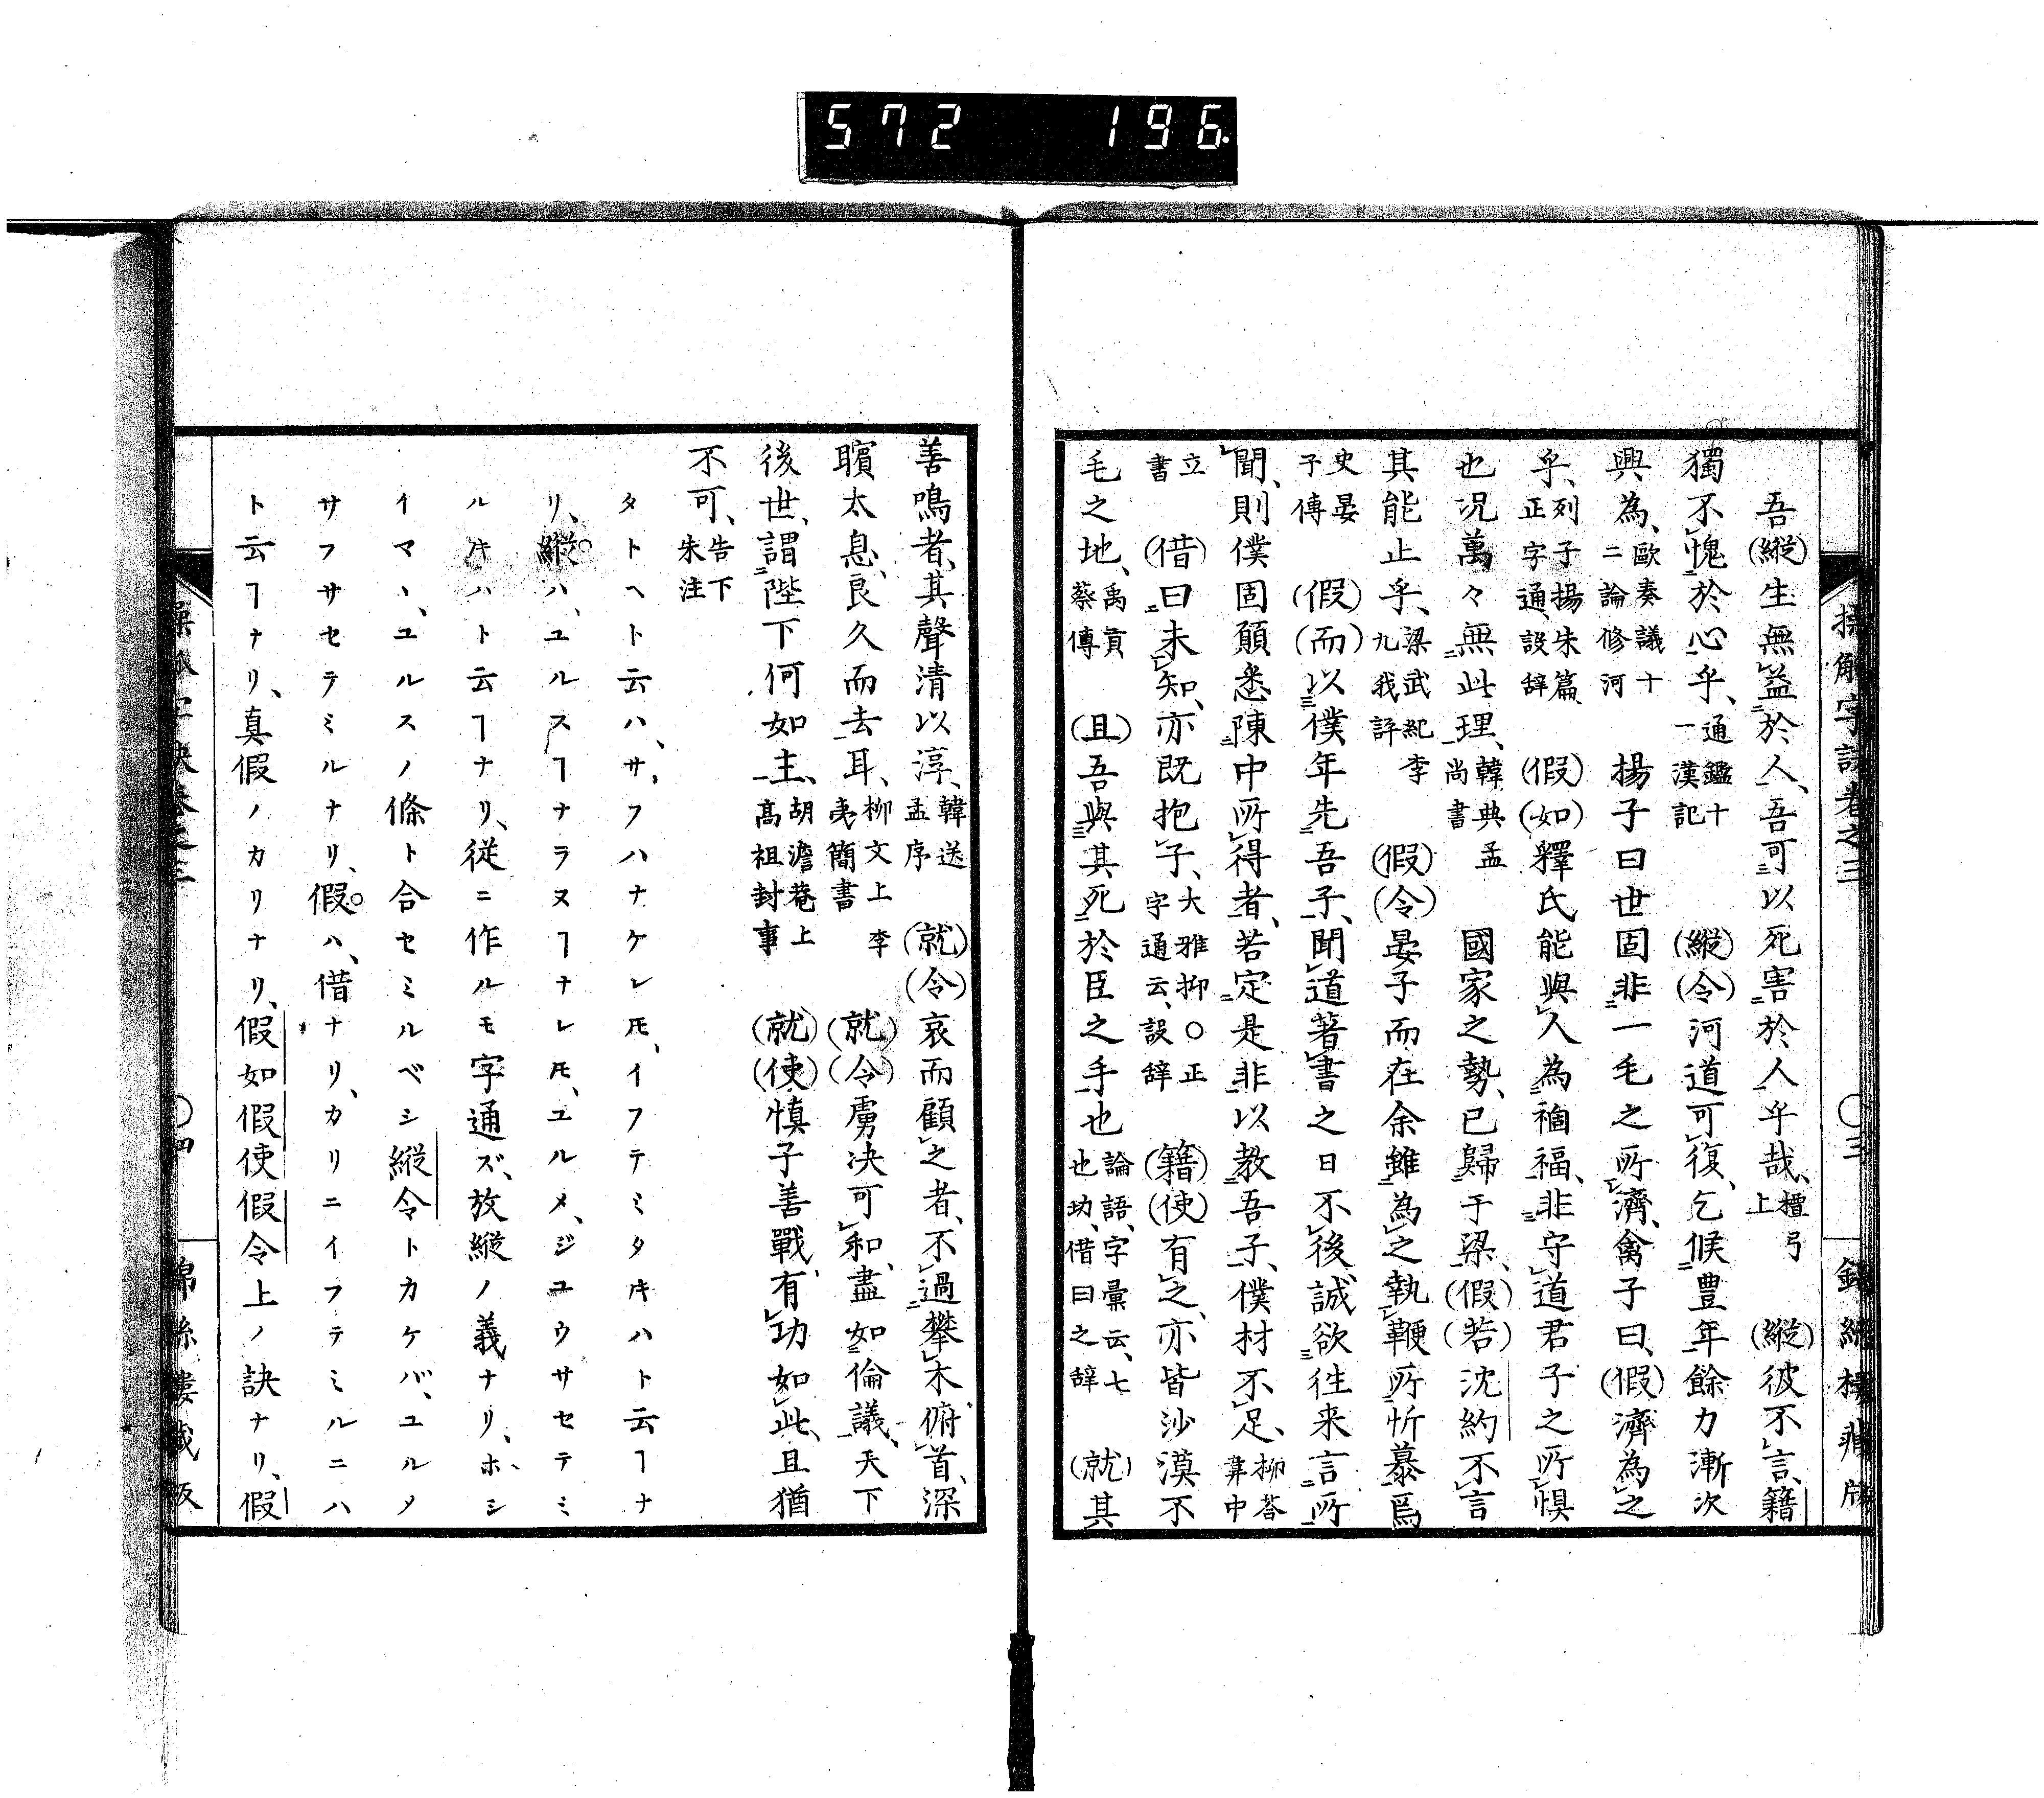 572 196
吾(縱)生無益於人、吾可以死害於人乎哉、檀弓上 (縱)彼不言、籍
獨不愧於心乎、通鑑十一漢記 (縱)(令)河道可復、乞候豊年餘力漸次
興為、歐奏議十二論修河 揚子曰世固非一毛之所濟、禽子曰、(假)濟為之
乎、列子揚朱篇正字通、設辞 (假)(如)釋氏能與人為禍福、非守道君子之所惧
也況萬々無此理、韓與孟尚書 國家之勢、已歸于梁、(假)(若)沈約不言
其能止乎、梁武紀李九我評 (假)(令)晏子而在余雖為之執鞭所忻慕焉
史晏子傳 (假)(而)以僕年先吾子、聞道著書之日不後、誠欲徃来言所
聞、則僕固願悉陳中所得者、若定是非以教吾子、僕材不足、柳荅韋中
立書 (借)曰未知、亦既抱子、大雅抑〇正字通云、設辞 (籍)(使)有之、亦皆沙漠不
毛之地、禹貢蔡傳 (且)吾與其死於臣之手也論語、字彙云、七也功、借曰之辞 (就)其
善鳴者、其聲清以淳、韓送孟序 (就)(令)哀而顧之者、不過攀木俯首、深
矉太息、良久而去耳、柳文上李夷簡書 (就)(令)虜决可和、盡如倫議、天下
後世、謂陛下何如主、胡澹菴上髙祖封事 (就)(使)慎子善戰、有功如此、且猶
不可、告下朱注
タトヘト云ハ、サ、フハナケレㇳモ、イフテミタキハト云ヿナ
リ、縱ハ、ユルスヿナラヌヿナレㇳモ、ユルメ、ジユウサセテミ
ルキハト云ヿナリ、従ニ作ルモ字通ズ、放縱ノ義ナリ、ホシ
イマヽ、ユルスノ條ト合セミルベシ縱令トカケバ、ユルメ
サフサセテミルナリ、假ハ、借ナリ、カリニイフテミルニハ
ト云ヿナリ、真假ノカリナリ、假如假使假令上ノ訣ナリ、假